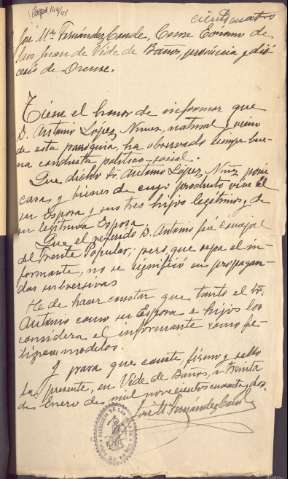 ciento cuatro
José Mª Fernández Conde, Cura Ecónomo de
San Juan de Vide de Baños, provincia y dió-
cesis de Orense.
Tiene el honor de informar que
D. Antonio Lopez Nuñez, natural y vecino
de esta parroquia, ha observado siempre bue-
na conducta politico-social.
Que dicho D. Antonio Lopez Nuñez posee
casas y bienes de cuyo producto vive él
su Esposa y sus tres hijos legitimos, de
su legitima Esposa.
Que el referido D. Antonio fué Concejal
del Frente Popular; pero que sepa el in-
formante, no se significó en propagan-
das subversivas
He de hacer constar que tanto el D.
Antonio como su Esposa e hijos los
considera el informante como pe-
ligrosos
Y para que conste firmo y sello
la presente, en Vide de Baños, a treinta
de Enero de mil novecientos cuarenta y dos
José Mª Fernández Conde